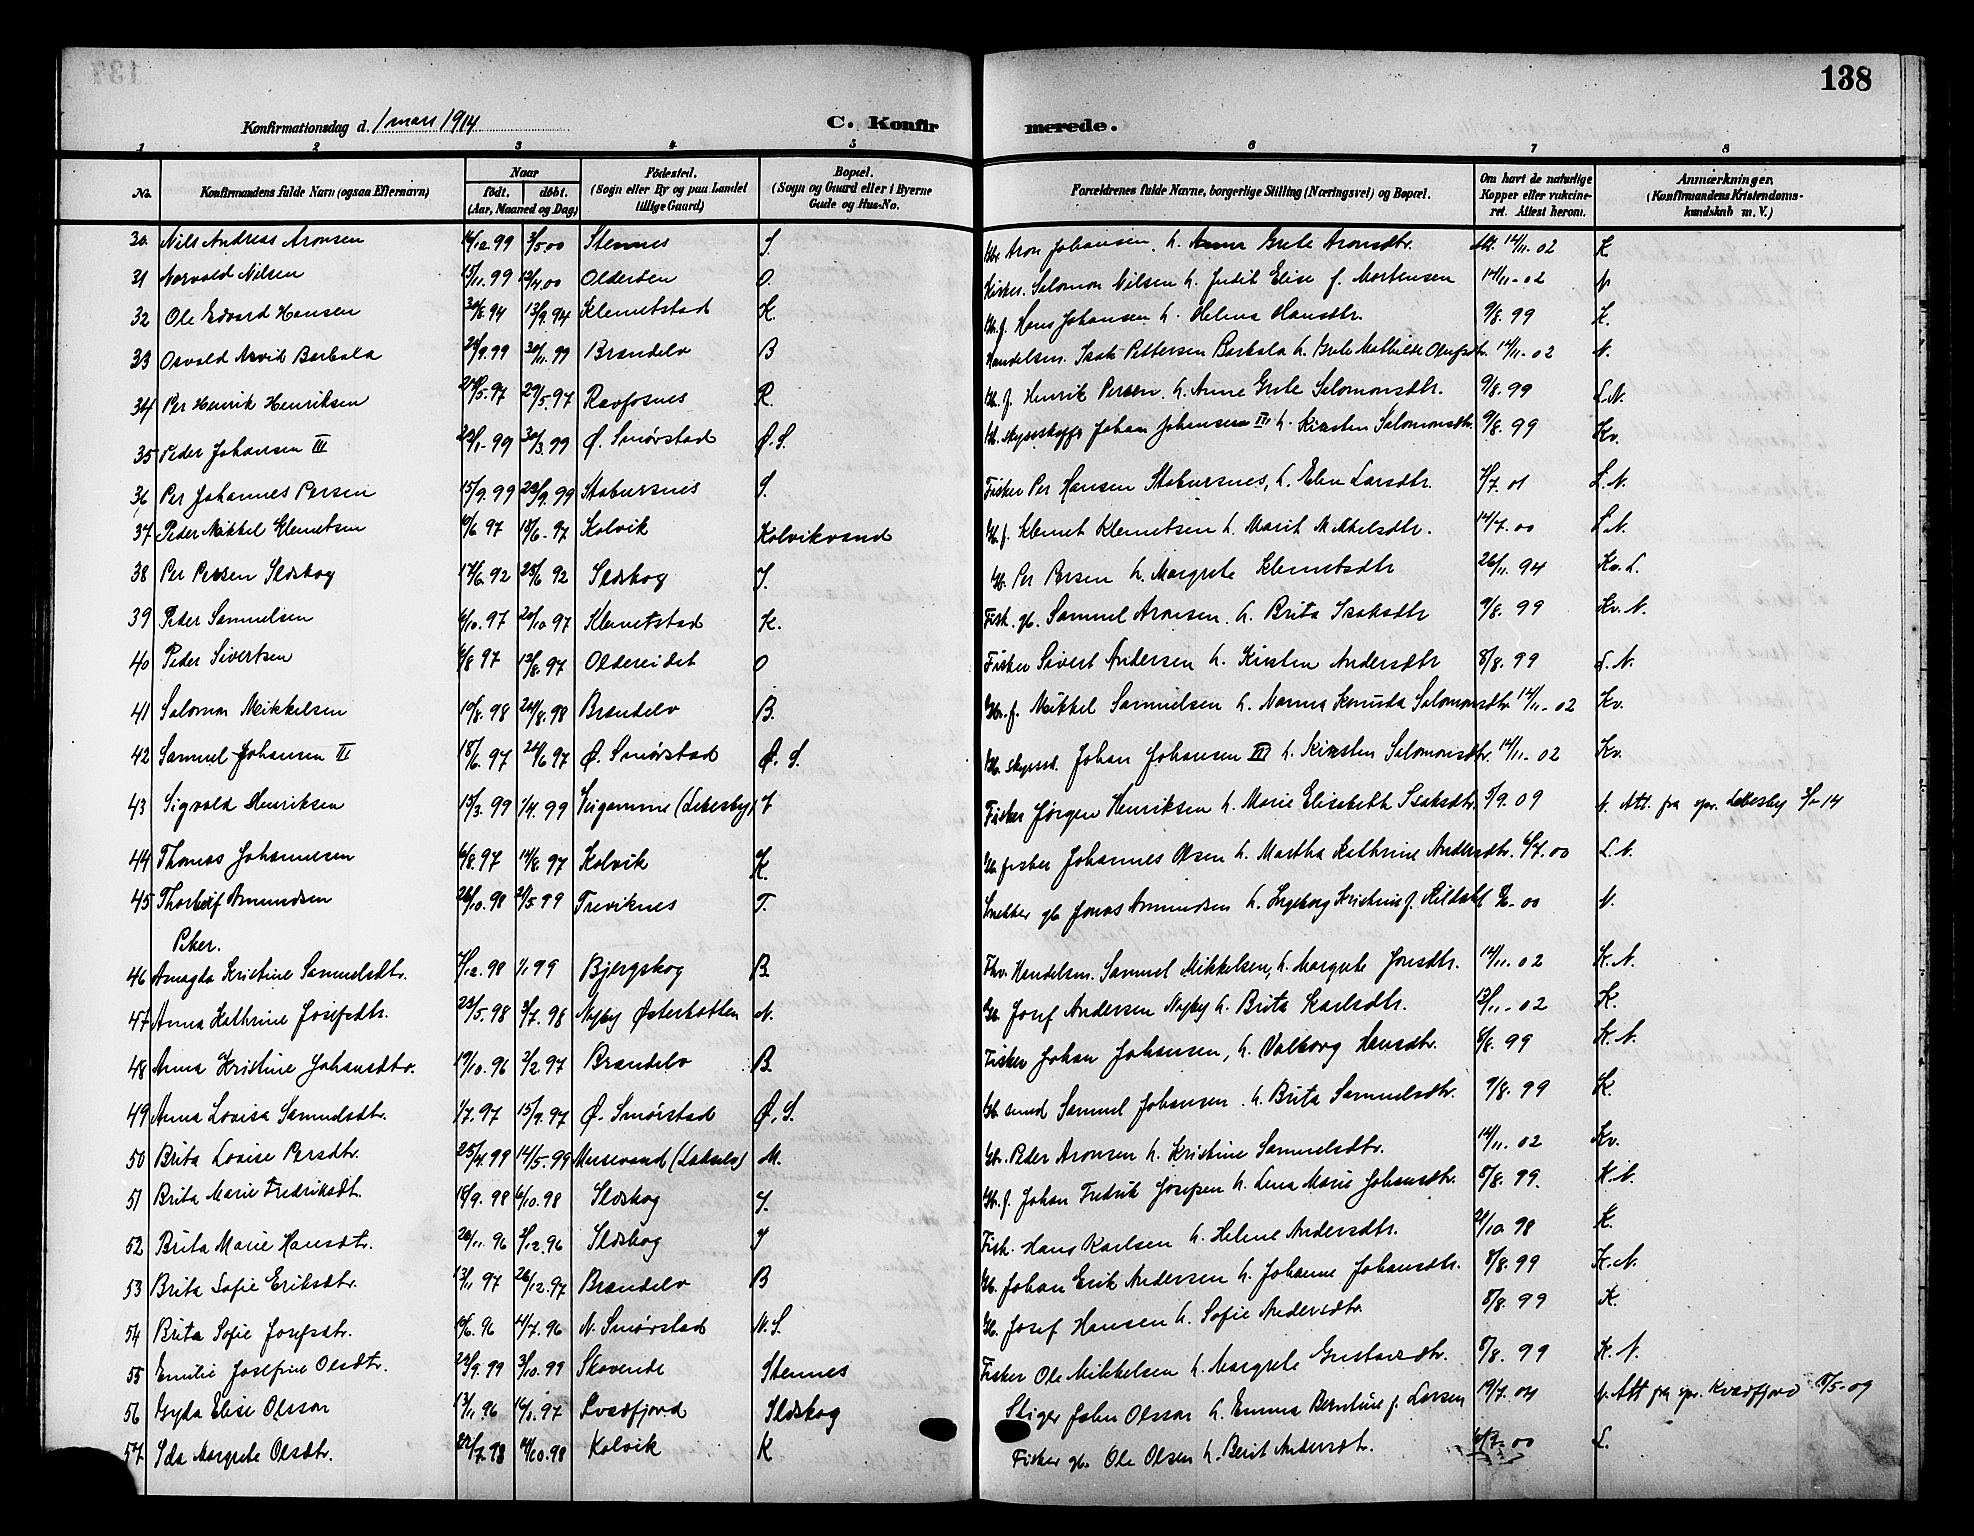 138
Konfirmationsdag d. 1 mars 1914
C. Konfirmerede.
1 2 3 4 5 6 7 8
No. Konfirmandens fulde Navn (ogsaa Efternavn) Naar født. døbt. (Aar, Maaned og Dag) Fødested. (Sogn eller By og paa Landet tillige Gaard) Bopæl. (Sogn og Gaard eller i Byerne Gade og Hus-No. Forældrenes fulde Navne, borgerlige Stilling (Næringsvei) og Bopæl. Om havt de naturlige Kopper eller vakcineret. Attest herom. Anmærkninger, (Konfirmandens Kristendomskundskab m. V.)
30 Nils Andreas Aronsen 3/5.00 Stennes S. Aron Johansen, h. Anna Grete Aronsdtr. 14/11.02 K
31 Norvald Nilsen 15/11.99 Olderøen O. Salomon Nilsen h. Judit Elise f. Mortensen 14/11-02 N
32 Ole Edvard Hansen 13/9.94 Klemetstad K. Gb.f. Hans Johansen h. Helena Hansdtr. 9/8.99 K.
33 Osvald Arvik Barbala 30/11.99 Brændelv B Handelsm. Isak Pettersen Barbala h. Grete Mathilde Olufsdtr. 14/11-02 N.
34 Per Henrik Henriksen 29/5.97 Ravfosnes R. Gb.f. Henrik Persen h. Anne Grete Salomonsdtr. 9/8.99 L.N.
35 Peder Johansen III 30/3.99 Ø. Smørstad Ø.S. Johan Johansen III h. Kirsten Salomonsdtr. 9/8.99 Kv.
36 Per Johannes Persen 15/9.99 Stabursnes S. Fisker Per Hansen Stabursnes, h. Elen Larsdtr. L.N.
37 Peder Mikkel Klemetsen 18/6.97 Kolvik Kolvikvand Gb.f. Klemet Klemetsen h. Marit Mikkelsdtr. 14/7.00 L.N.
38 Per Persen Ildskog 17/6.92 25/6 92 Ildskog I. Gb. Per Persen h. Margrete Klemetsdtr 26/11.94 Kv.L.
39 Peder Samuelsen 6/10.97 20/10 97 Klemetstad K. Fisk. gb. Samuel Aronsen h. Brita Isaksdtr 9/8.99 Kv.N.
40 Peder Sivertsen 12/8.97 Oldereidet O Fisker Sivert Andersen h. Kirsten Andersdtr 8/8.99 L.N.
41 Salomon Mikkelsen 10/8.98 24/8.98 Brændelv B. Gb.f. Mikkel Samuelsen h. Salomonsdtr. 14/11-02 Kv.
42 Samuel Johansen III 18/6.97 24/6 97 Ø. Smørstad Ø.S. Gb. skyssst. Johan Johansen III h. Kirsten Salomonsdtr. 14/11-02 Kv.
43 Sigvald Henriksen 15/3.99 1/4.99 Veigamme (Lebesby) I Fisker Jørgen Henriksen h. Marie Elisabeth Isaksdtr. 5/9.09 N. Att. fra spr. Lebesby 14
44 Thomas Johannesen 6/8.97 14/8.97 Kolvik K. Gb. fisker Johannes Olsen h. Martha Kathrine Andersdtr. 6/7.00 L.N.
45 Thorleif Amundsen 26/10.98 21/5 99 Treviknes T. Snekker gb Jonas Amundsen h. Ingeborg Kristine f. Kildahl N.
Piker.
46 Amagda Kristine Samuelsdtr. 7/12.98 1/1 99 Bjergskog B. Handelsm. Samuel Mikkelsen, h. Margrete Jonsdtr. 14/11.02 K.N.
47 Anna Kathrine Josefsdtr. 23/5.98 3/7.98 Nyby Østerbotten N. Gb Josef Andersen Nyby h. Brita Karlsdtr. K.
48 Anna Kristine Johansdtr. 19/10.96 2/2.97 Brændelv B. Fisker Johan Johansen, h. Valborg Hansdtr. K.N.
49 Anna Lovisa Samuelsdtr. 1/7.97 15/9.97 Ø. Smørstad Ø.S. Gb. smed Samuel Johansen h. Brita Samuelsdtr. 9/8.99 K.
50 Brita Lovise Persdtr. 25/4.99 14/5.99 Mussevand (Lakselv) M. Gbr. Peder Aronsen h. Kristine Samuelsdtr. 14/11.02 Kv.
51 Brita Marie Fredriksdt. 18/9.98 6/10.98 Ildskog I. Gb.f. Johan Fredrik Josefsen h. Lena Marie Johansdtr. 8/8.99. K.N.
52 Brita Marie Hansdtr. 20/11.96 Ildskog I Fisk. Hans Karlsen h. Helene Andersdtr. 21/10 98 K.
53 Brita Sofie Eriksdtr. 26/12.97 Brændelv B Gb. Johan Erik Andersen h. Johanne Johansdtr. 8/8.99 K.N.
54 Brita Sofie Josefsdtr. N. Smørstad N.S. Gb. Josef Hansen h. Sofie Andersdtr. 8/8.99 K.
55 Emilie Josefine Olsdtr. 3/10.99 Skoverde Stennes Fisker Ole Mikkelsen h. Margrete Gustavsdtr. 8/8.99 K.N.
56 Gyda Elise Olsson 13/11.96 Kvæfjord Ildskog Stiger John Olsson h. Emma Berntine f. Larsen 19/7.04 N. Att fra spr. Kvæfjord
57 Ida Margrete Olsdtr. Kolvik K Fisker gb. Ole Olsen h. Berit Andersdt. 6/7.00 L.